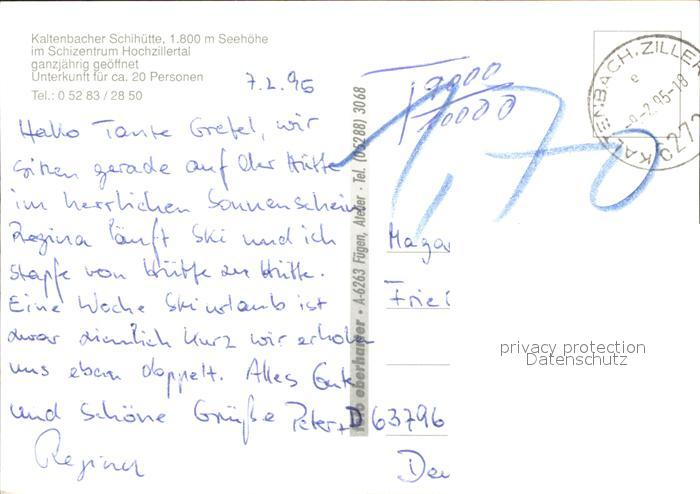 Kaltenbacher Schihütte, 1.800 m Seehöhe
im Schizentrum Hochzillertal
ganzjährig geöffnet
Unterkunft für ca. 20 Personen
Tel.: 0 52 83 / 28 50
7.2.95
Hallo Tante Gretel, wir
sitzen gerade auf der Hütte
im herrlichen Sonnenschein
Regina läuft Ski und ich
stapfe von Hütte zu Hütte.
Eine Woche Skiurlaub ist
zwar ziemlich kurz wir erholen
uns eben doppelt. Alles Gute
und schöne Grüße Peter +
Regina
eberharter • A-6263 Fügen, Atelier · Tel. (05288) 3068
T 7000
10000
1,70
KALTENBACH, ZILLER
-9.-2.95-18
e
6272
Magar
Friel
D 63796
privacy protection
Datenschutz